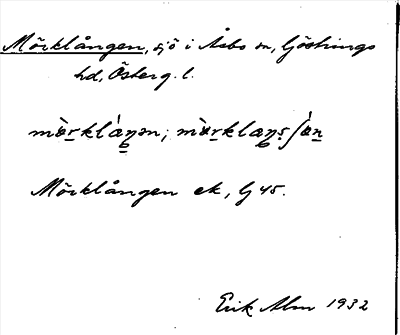 Mörklången, sjö i Åsbo sn, Göstrings
hd, Österg. l.
mœ̀rklȧŋən; mœ̀rklaŋsʃön
Mörklången ek, bj 45.
Erik Alm 1932